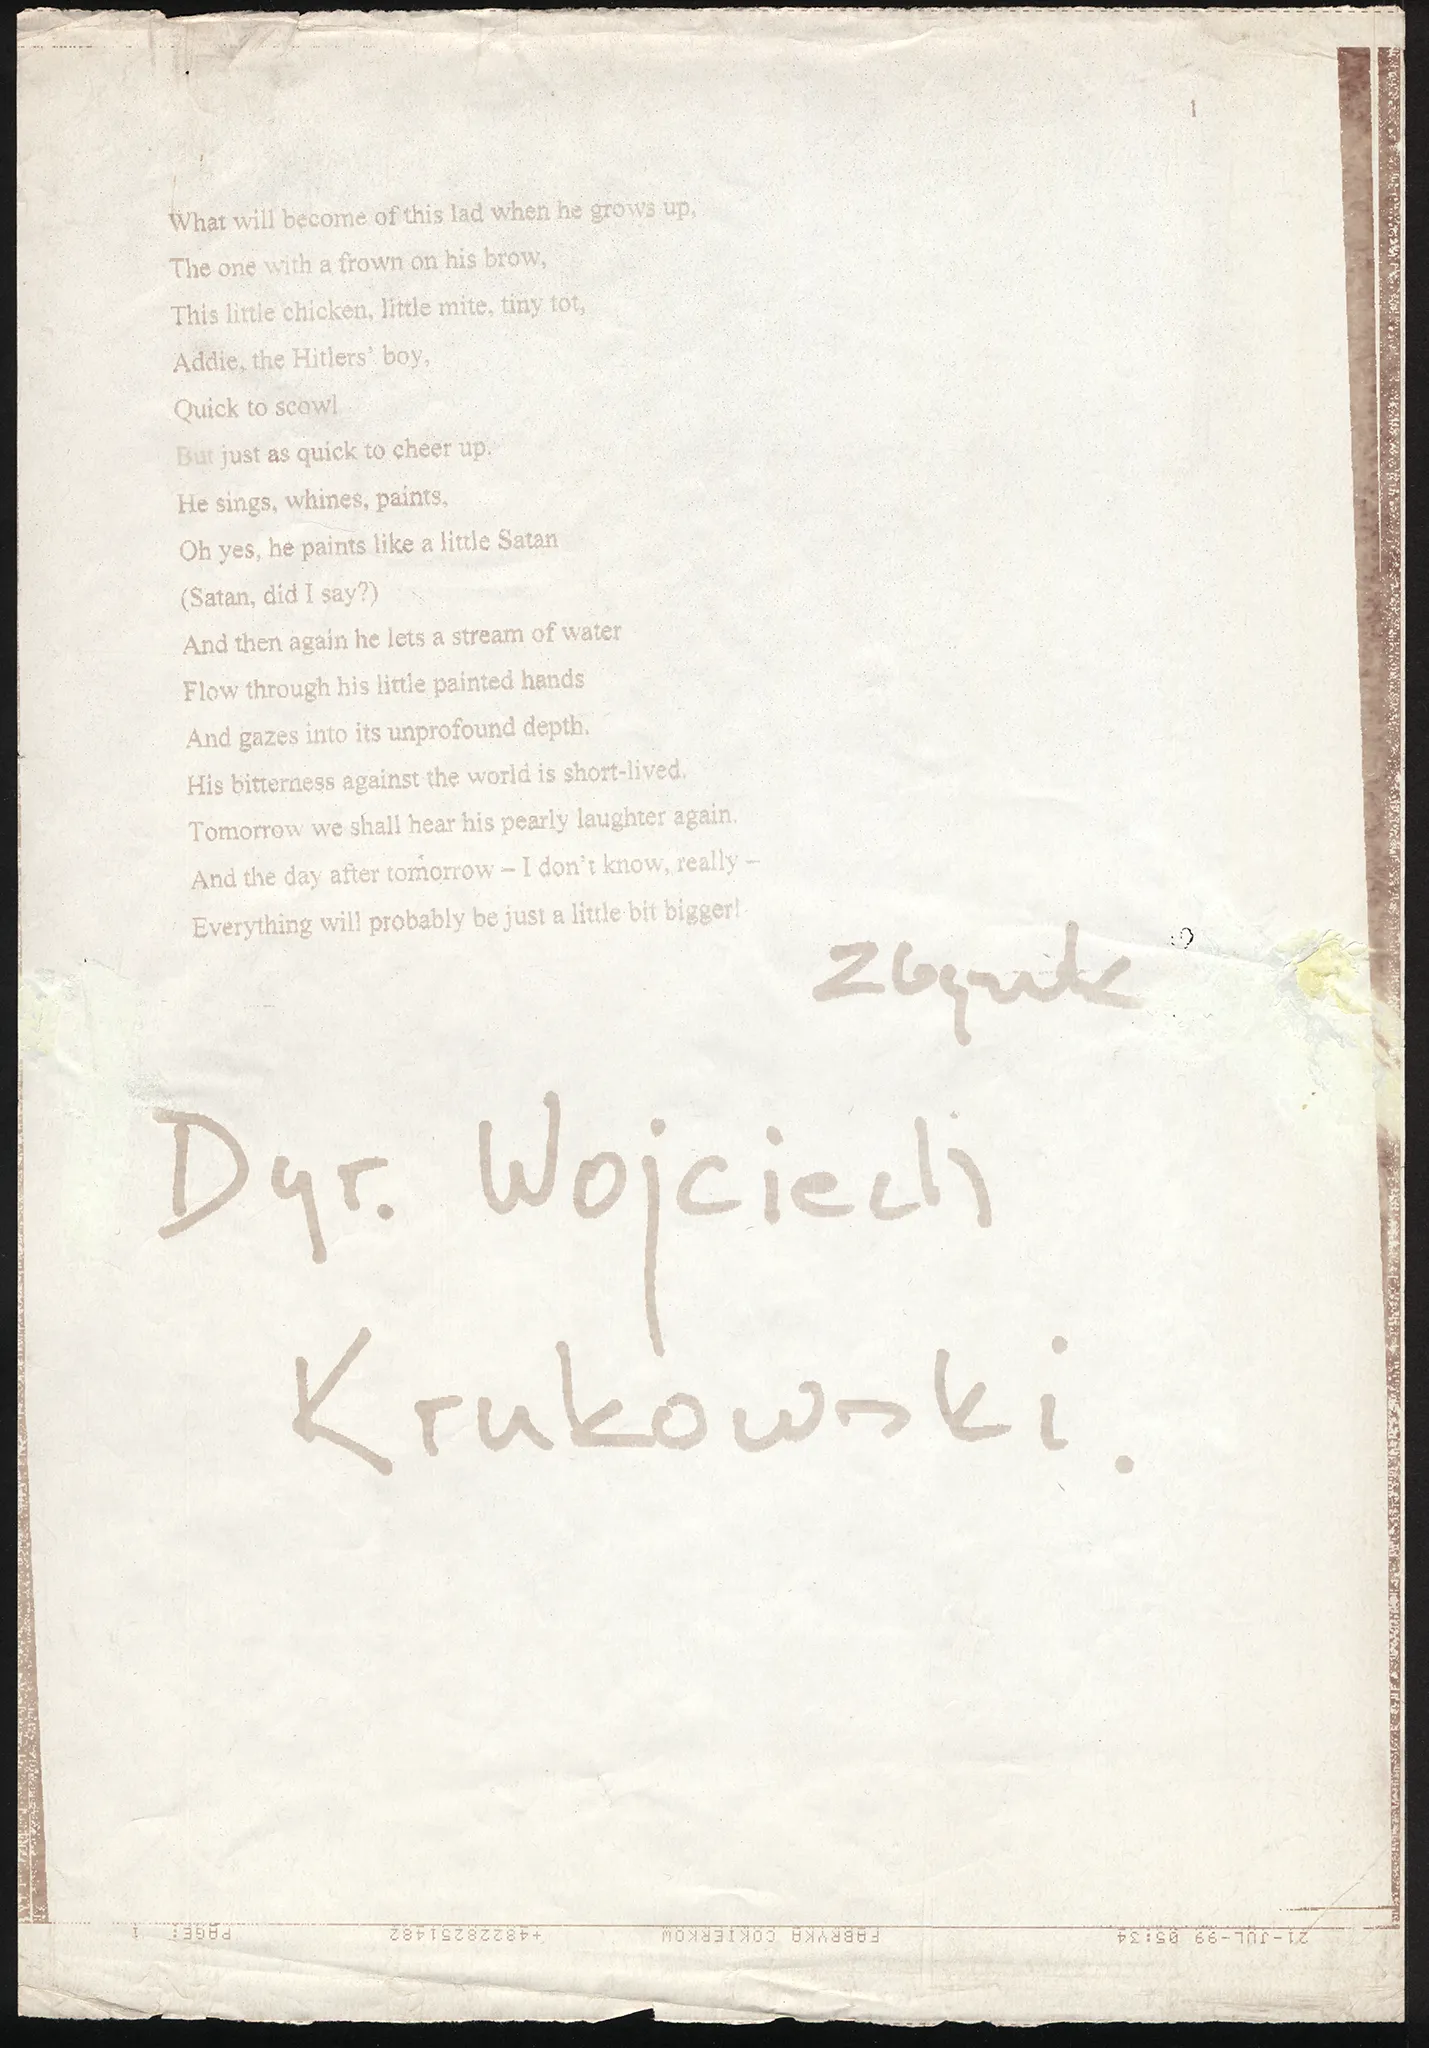 1
What will become of this lad when he grows up,
The one with a frown on his brow,
This little chicken, little mite, tiny tot,
Addie, the Hitlers' boy,
Quick to scowl
But just as quick to cheer up.
He sings, whines, paints,
Oh yes, he paints like a little Satan
(Satan, did I say?)
And then again he lets a stream of water
Flow through his little painted hands
And gazes into its unprofound depth.
His bitterness against the world is short-lived.
Tomorrow we shall hear his pearly laughter again.
And the day after tomorrow – I don't know, really –
Everything will probably be just a little bit bigger!
Zbynek
Dyr. Wojciech
Krukowski.
21-JUL-99 05:34 FABRYKA COKIERKOW +48228251482 PAGE: 1